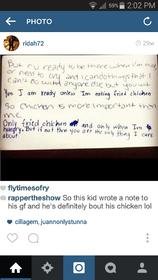 59% 2:02 PM
ridah72
29w
But r u ready to be there when I'm mad
or need to cry and i can do things that I
can't do with anyone else but you
Yes I am ready unless Im eating fried chicken
So chicken is more important than
me
Only fried chicken and only when Im
hungry. But if not then you are the only thing I care
about
flytimesofry
rappertheshow So this kid wrote a note to
his gf and he's definitely bout his chicken lol
cillagem, juannonlystunna